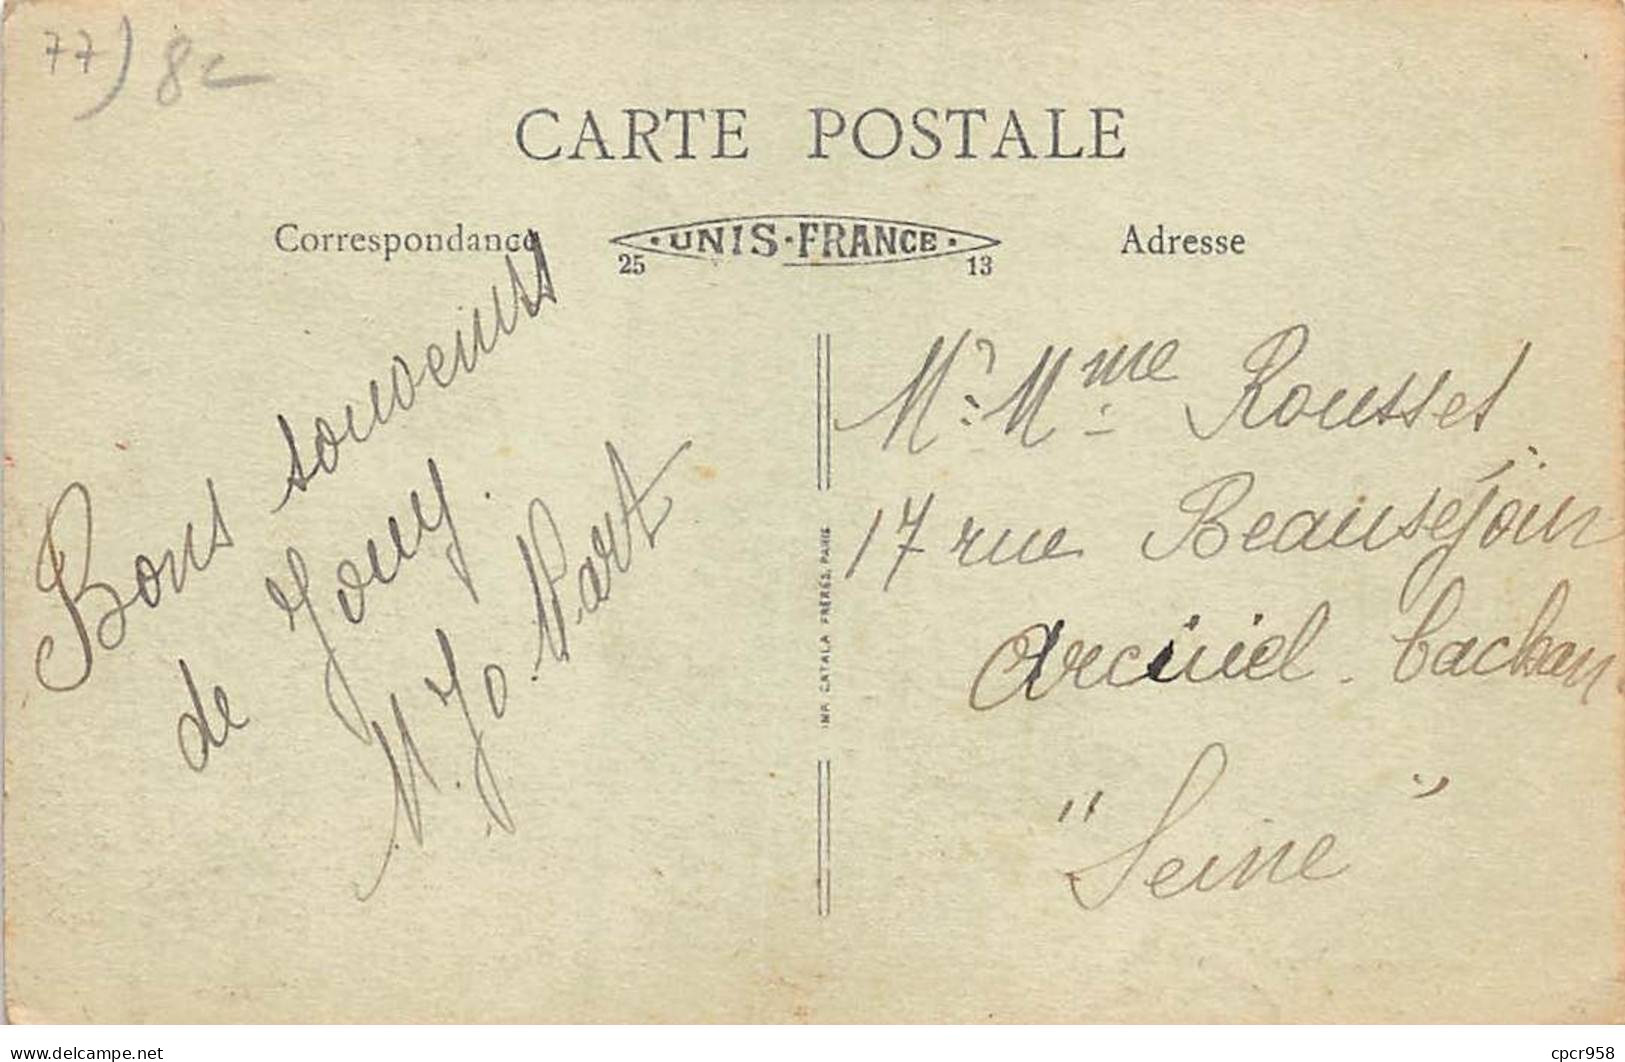 77) 8c
CARTE POSTALE
Correspondance
UNIS-FRANCE
25 13
Adresse
Bons souvenirs
de Jouy.
M. Jo
IMP. CATALA FRÈRES, PARIS
Mr Mme Rousset
17 rue Beauséjour
Arcueil. Cachan
"Seine"
www.delcampe.net
cpcr958